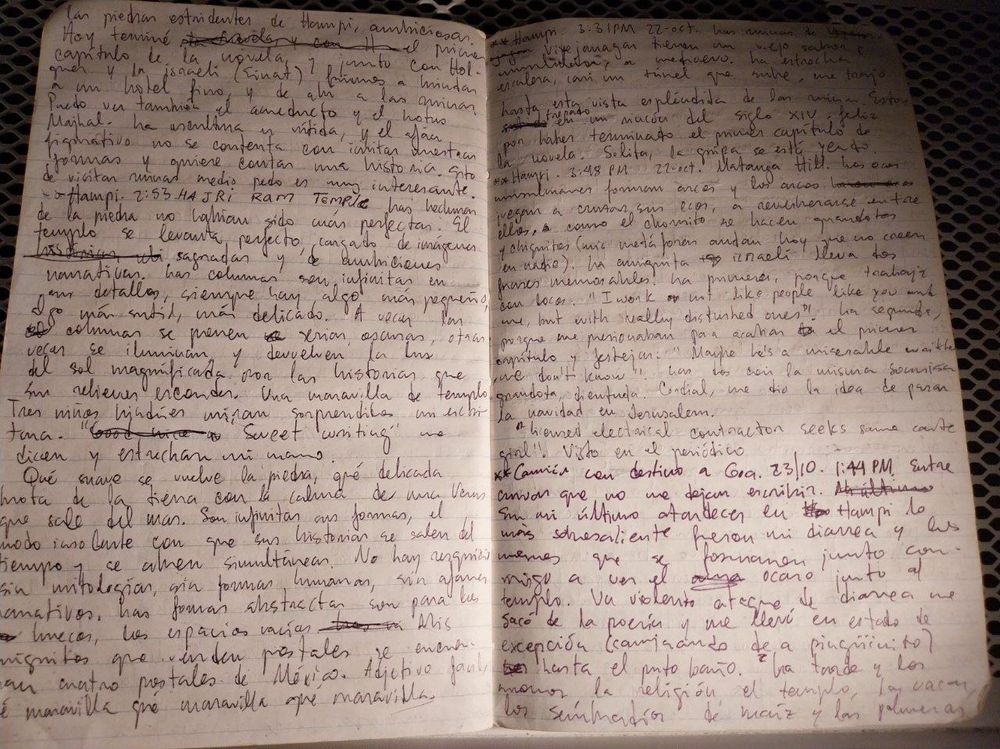 las piedras estridentes de Hampi, ambiciosas.
Hoy terminé el primer
capítulo de la novela, y junto con Hol-
ger y la israelí (Einat) fuimos a brindar
a un hotel fino, y de ahí a las ruinas.
Puedo ver también el acueducto y el Lotus
Mahal. La escultura es nítida, y el afán
figurativo no se contenta con imitar nuestras
formas y quiere contar una historia. Esto
de visitar ruinas medio pedo es muy interesante.
Hampi. 2:53 HAJRI RAM TEMPLE Las
de la piedra no habían sido más perfectas. El
templo se levanta, perfecto, cargado de imágenes
sagradas y de ambiciones
narrativas. Las columnas son infinitas en
sus detalles, siempre hay algo más pequeño,
algo más sutil, más delicado. A veces las
columnas se ponen serias oscuras, otras
veces se iluminan y devuelven la luz
del sol magnificada por las historias que
sus relieves esconden. Una maravilla de templo.
Tres niños hindúes miran sorprendidos mi escri-
tura. "Sweet writing" me
dicen y estrechan mi mano.
Qué suave se vuelve la piedra, qué delicada
brota de la tierra con la calma de una Venus
que sale del mar. Son infinitas sus formas, el
modo insolente con que sus historias se salen del
tiempo y se abren simultáneas. No hay
sin mitologías, sin formas humanas, sin afanes
narrativos. Las formas abstractas son para los
huecos, los espacios vacíos Mis
amiguitos que venden postales se encuen-
tran cuatro postales de México. Adjetivo fácil,
qué maravilla qué maravilla.
** Hampi 3:31 PM 22-oct. Las ruinas de
Vijayanagar tienen un viejo sabor a
a medioevo. La estrecha
escalera, casi un túnel que sube, me trajo
hasta esta vista espléndida de las ruinas. Estoy
trepado en un rincón del siglo XIV, feliz
por haber terminado el primer capítulo de
la novela. Solita, la gripa se está yendo
* Hampi. 3:48 PM 22-oct. Matanga Hill. Los arcos
musulmanes forman arcos y los arcos
juegan a cruzar sus ecos, a reverberarse entre
ellos, como el chorrito se hacen grandotes
y chiquitos (mis metáforas andan hoy que no creen
en nadie). La amiguita israelí lleva dos
frases memorables: la primera, porque trabaja
con locos. "I work not like people like you and
me, but with really disturbed ones". La segunda,
porque me presionaban para acabar el primer
capítulo y festejar: "Maybe he's a miserable writer
we don't know"! Las dos con la misma sonrisa
grandota, dientuda. Cordial, me dio la idea de pasar
la navidad en Jerusalem.
"Licensed electrical contractor seeks same caste
girl". Visto en el periódico
** Camión con destino a Goa. 23/10. 1:44 PM. Entre
curvas que no me dejan escribir.
En mi último atardecer en Hampi lo
más sobresaliente fueron mi diarrea y los
monos que se formaron junto con-
migo a ver el ocaso junto al
templo. Un violento ataque de diarrea me
sacó de la poesía y me llevó en estado de
excepción (caminando de a pingüinito)
hasta el puto baño. La tarde y los
monos la religión el templo, las vacas,
los sembradíos de maíz y las palmeras